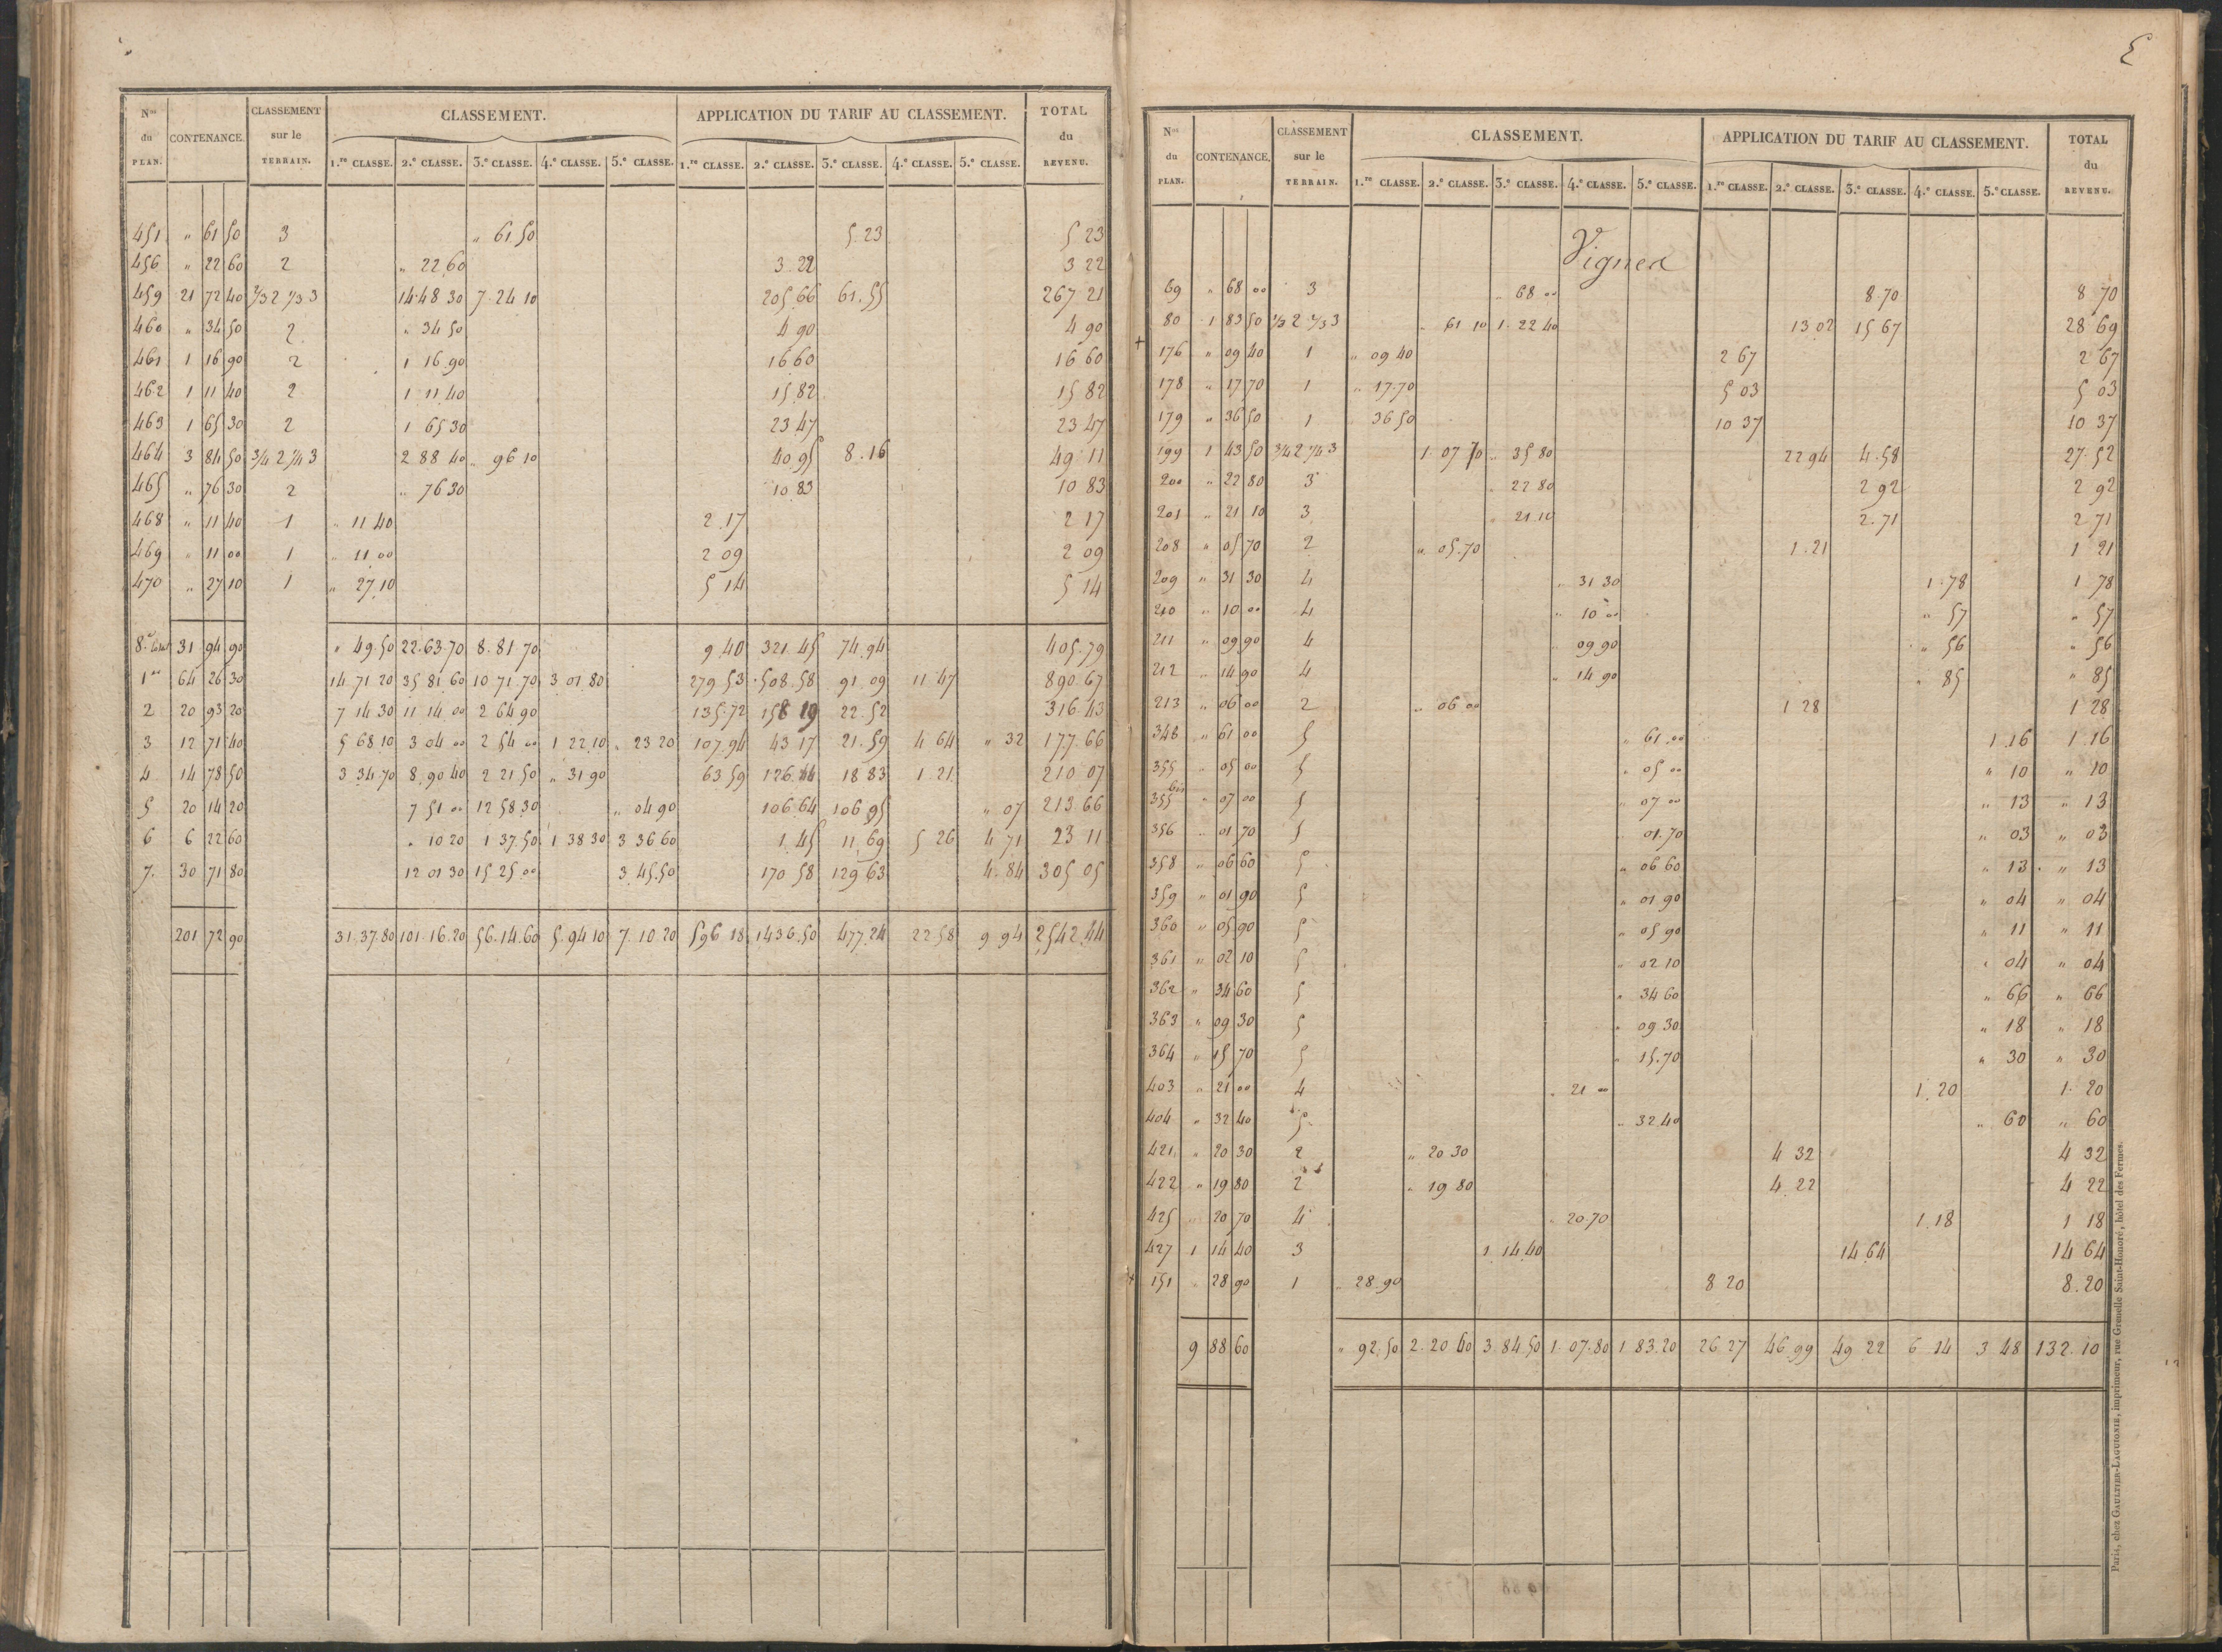 Nos du PLAN. CONTENANCE. CLASSEMENT sur le TERRAIN. CLASSEMENT. APPLICATION DU TARIF AU CLASSEMENT. TOTAL du REVENU.
1.re CLASSE. 2.e CLASSE. 3.e CLASSE. 4.e CLASSE. 5.e CLASSE. 1.re CLASSE. 2.e CLASSE. 3.e CLASSE. 4.e CLASSE. 5.e CLASSE.
451 " 61 50 3 " 61 50 5.23 5 23
456 " 22 60 2 " 22 60 3.22 3 22
459 21 72 40 2/3 2 1/3 3 14 48 30 7.24 10 205 66 61.55 267 21
460 " 34 50 2 " 34 50 4 90 4 90
461 1 16 90 2 1 16 90 16 60 16 60
462 1 11 40 2 1 11 40 15 82 15 82
463 1 65 30 2 1 65 30 23 47 23 47
464 3 84 50 3/4 2 1/4 3 2 88 40 " 96 10 40 95 8.16 49 11
465 " 76 30 2 " 76 30 10 83 10 83
468 " 11 40 1 " 11 40 2.17 2 17
469 " 11 00 1 " 11 00 2 09 2 09
470 " 27 10 1 " 27 10 5 14 5 14
8.e 31 94 90 " 49.50 22.63.70 8.81 70 9.40 321.45 74.94 405.79
1er 64 26 30 14 71 20 35 81 60 10 71 70 3 01 80 279 53 508.58 91 09 11 47 890 67
2 20 93 20 7 14 30 11 14 00 2 64 90 135.72 158 19 22.52 316 43
3 12 71 40 5 68 10 3 04 00 2 54 00 1 22 10 " 23 20 107.94 43 17 21.59 4 64 " 32 177 66
4 14 78 50 3 34 70 8 90 40 2 21 50 " 31 90 63 59 126.44 18 83 1.21 210 07
5 20 14 20 7 51 00 12 58 30 " 04 90 106 64 106 95 " 07 213 66
6 6 22 60 " 10 20 1 37 50 1 38 30 3 36 60 1.45 11.69 5 26 4 71 23 11
7. 30 71 80 12 01 30 15 25 00 3 45.50 170 58 129 63 4.84 305 05
201 72 90 31.37.80 101.16.20 56.14.60 5.94 10 7.10 20 596 18 1436.50 477.24 22 58 9 94 2542.44
E
Nos du PLAN. CONTENANCE. CLASSEMENT sur le TERRAIN. CLASSEMENT. APPLICATION DU TARIF AU CLASSEMENT. TOTAL du REVENU.
1.re CLASSE. 2.e CLASSE. 3.e CLASSE. 4.e CLASSE. 5.e CLASSE. 1.re CLASSE. 2.e CLASSE. 3.e CLASSE. 4.e CLASSE. 5.e CLASSE.
Vignes
69 " 68 00 3 " 68 00 8.70 8 70
80 1 83 50 1/3 2 2/3 3 " 61 10 1.22 40 13 02 15 67 28 69
+ 176 " 09 40 1 " 09 40 2 67 2 67
178 " 17 70 1 " 17.70 5 03 5 03
179 " 36 50 1 36 50 10 37 10 37
199 1 43 50 3/4 2 1/4 3 1 07 70 " 35 80 22 94 4.58 27.52
200 " 22 80 3 " 22 80 2 92 2 92
201 " 21 10 3 " 21.10 2.71 2 71
208 " 05 70 2 " 05.70 1.21 1 21
209 " 31 30 4 " 31 30 1.78 1 78
210 " 10 00 4 " 10 00 " 57 " 57
211 " 09 90 4 " 09 90 " 56 " 56
212 " 14 90 4 " 14 90 " 85 " 85
213 " 06 00 2 " 06 00 1 28 1 28
348 " 61 00 5 " 61.00 1.16 1.16
355 " 05 00 5 " 05 00 " 10 " 10
355 bis " 07 00 5 " 07 00 " 13 " 13
356 " 01 70 5 " 01.70 " 03 " 03
358 " 06 60 5 " 06 60 " 13 " 13
359 " 01 90 5 " 01 90 " 04 " 04
360 " 05 90 5 " 05 90 " 11 " 11
361 " 02 10 5 " 02 10 " 04 " 04
362 " 34 60 5 " 34 60 " 66 " 66
363 " 09 30 5 " 09 30 " 18 " 18
364 " 15 70 5 " 15.70 " 30 " 30
403 " 21 00 4 " 21 00 1.20 1.20
404 " 32 40 5 " 32 40 " 60 " 60
421 " 20 30 2 " 20 30 4 32 4 32
422 " 19 80 2 " 19 80 4.22 4 22
425 " 20 70 4 " 20.70 1.18 1 18
427 1 14 40 3 1 14 40 14 64 14 64
+ 151 " 28 90 1 " 28.90 8 20 8.20
9 88 60 " 92.50 2.20 60 3.84.50 1.07.80 1 83.20 26 27 46.99 49 22 6 14 3 48 132.10
Paris, chez GAULTIER-LAGUIONIE, imprimeur, rue Grenelle Saint-Honoré, hôtel des Fermes.